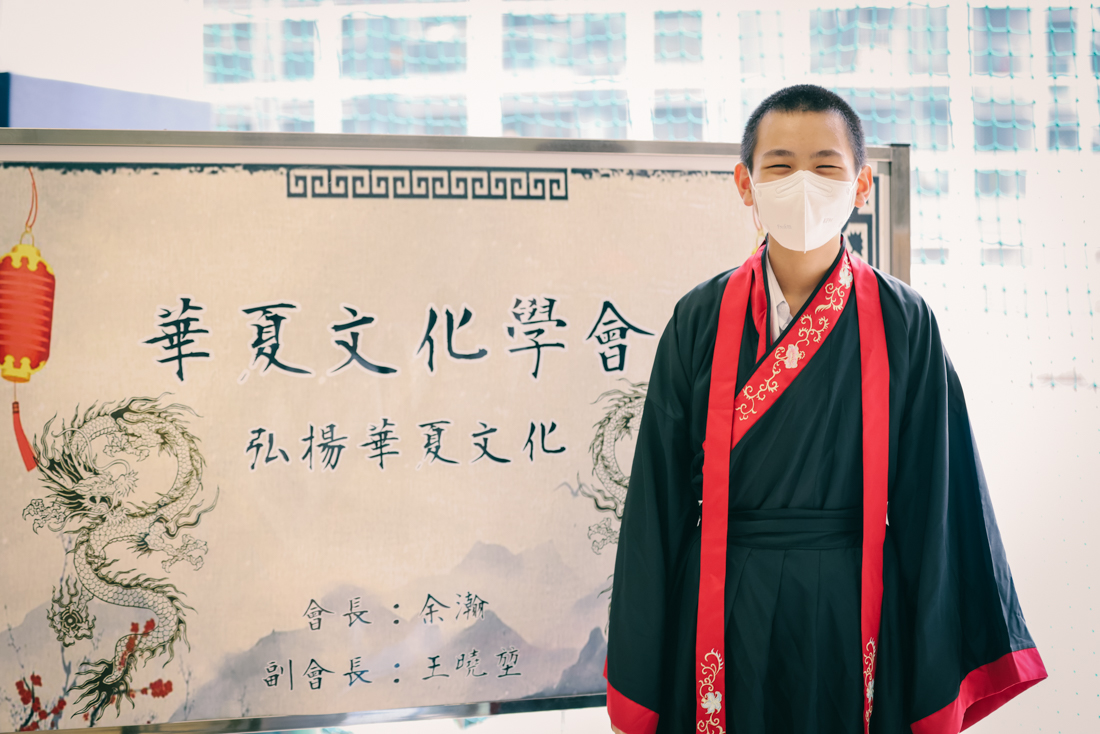 華夏文化學會
弘楊華夏文化
會長：余瀚
副會長：王曉堃